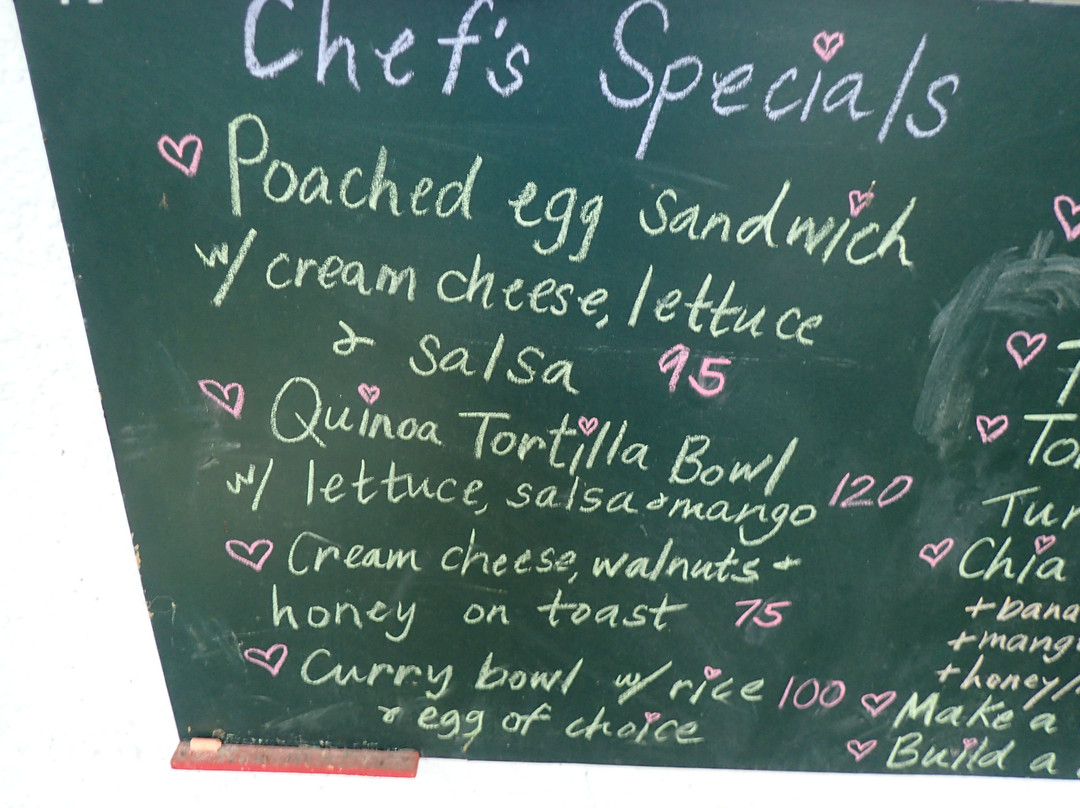 Chef's Specials
Poached egg sandwich
w/ cream cheese, lettuce
& salsa 95
Quinoa Tortilla Bowl
w/ lettuce, salsa & mango 120
Cream cheese, walnuts &
honey on toast 75
Curry bowl w/ rice 100
& egg of choice
Chia
+mang
+honey/
Make a
Build a